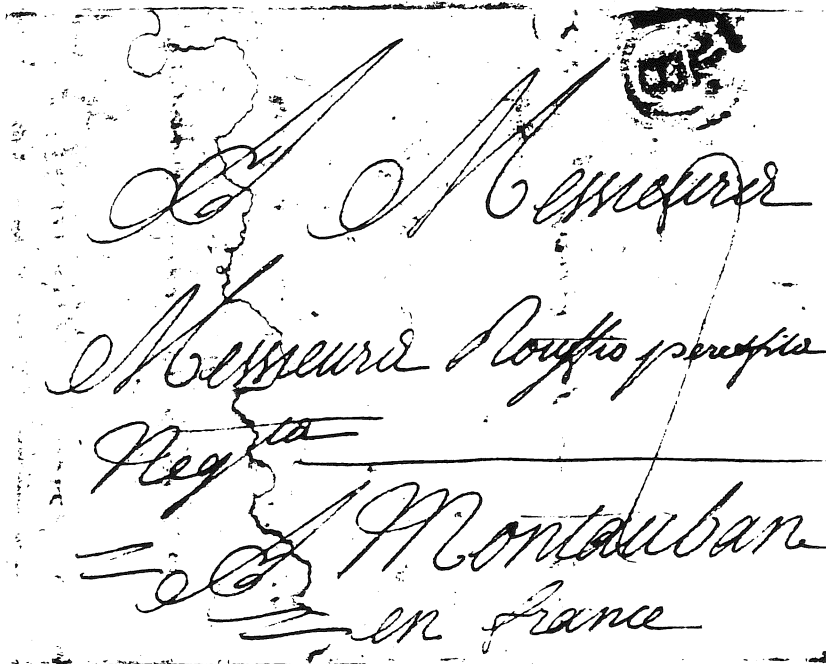 A Messieurs
Messieurs Rouffio pere & fils
Neg^ts
A Montauban
en france